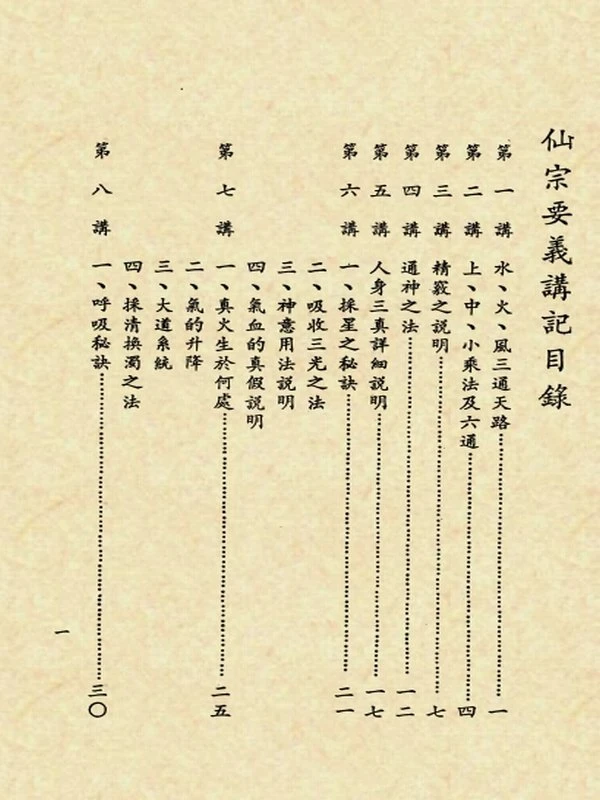 仙宗要義講記目錄
第一講 水、火、風三通天路………一
第二講 上、中、小乘法及六通………四
第三講 精竅之說明………七
第四講 通神之法………一二
第五講 人身三真詳細說明………一七
第六講 一、採星之秘訣………二一
二、吸收三光之法
三、神意用法說明
四、氣血的真假說明
第七講 一、真火生於何處………二五
二、氣的升降
三、大道系統
四、採清換濁之法
第八講 一、呼吸秘訣………三〇
一